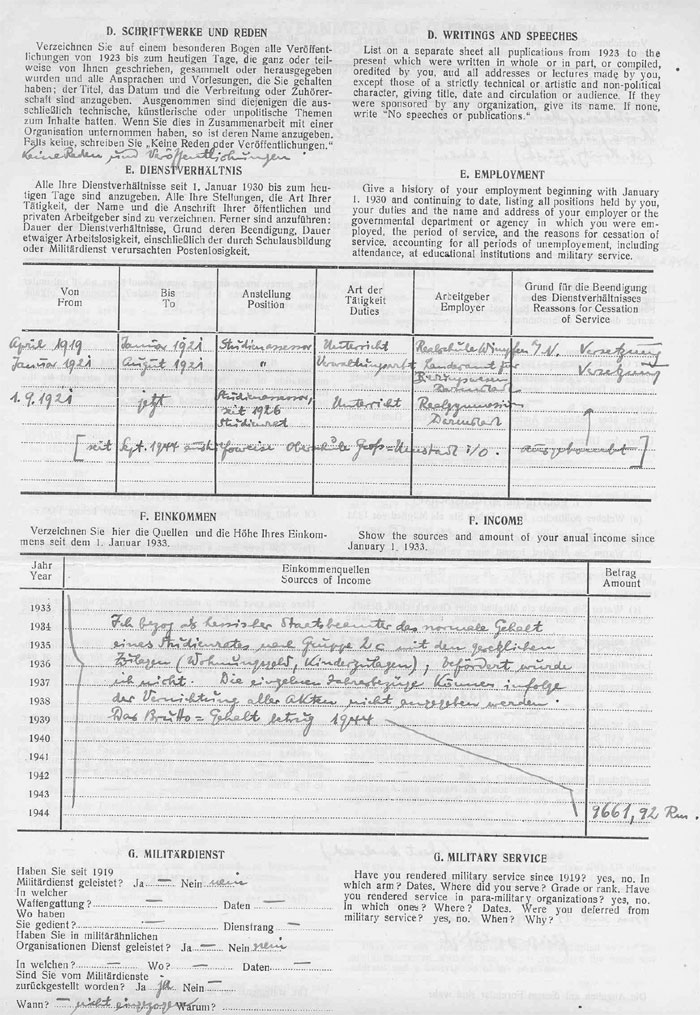 D. SCHRIFTWERKE UND REDEN
Verzeichnen Sie auf einem besonderen Bogen alle Veröffent-
lichungen von 1923 bis zum heutigen Tage, die ganz oder teil-
weise von Ihnen geschrieben, gesammelt oder herausgegeben
wurden und alle Ansprachen und Vorlesungen, die Sie gehalten
haben; der Titel, das Datum und die Verbreitung oder Zuhörer-
schaft sind anzugeben. Ausgenommen sind diejenigen die aus-
schließlich technische, künstlerische oder unpolitische Themen
zum Inhalte hatten. Wenn Sie dies in Zusammenarbeit mit einer
Organisation unternommen haben, so ist deren Name anzugeben.
Falls keine, schreiben Sie „Keine Reden oder Veröffentlichungen.“
Keine Reden und Veröffentlichungen
D. WRITINGS AND SPEECHES
List on a separate sheet all puplications from 1923 to the
present which were written in whole or in part, or compiled,
oredited by you, aud all addresses or lectures made by you,
except those of a strictly technical or artistic and non-political
character, giving title, date and circulation or audience. If they
were sponsored by any organization, give its name. If none,
write “No speeches or publications.“
E. DIENSTVERHÄLTNIS
Alle Ihre Dienstverhältnisse seit 1. Januar 1930 bis zum heu-
tigen Tage sind anzugeben. Alle Ihre Stellungen, die Art Ihrer
Tätigkeit, der Name und die Anschrift Ihrer öffentlichen und
privaten Arbeitgeber sind zu verzeichnen. Ferner sind anzuführen:
Dauer der Dienstverhältnisse, Grund deren Beendigung, Dauer
etwaiger Arbeitslosigkeit, einschließlich der durch Schulausbildung
oder Militärdienst verursachten Postenlosigkeit.
E. EMPLOYMENT
Give a history of your employment beginning with January
1. 1930 and continuing to date, listing all positions held by you,
your duties and the name and address of your employer or the
governmental department or agency in which you were em-
ployed, the period of service, and the reasons for cessation of
service, accounting for all periods of unemployement, including
attendance, at educational institutions and military service.
Von Bis Anstellung Art der Tätigkeit Arbeitgeber Grund für die Beendigung des Dienstverhältnisses
From To Position Duties Employer Reassons for Cessation of Service
April 1919 Januar 1921 Studienassessor Unterricht Realschule Wimpfen a/N. Versetzung
Januar 1921 August 1921 " Verwaltungsarbt Landesamt für Bildungswesen Darmstadt Versetzung
1.9.1921 jetzt Studienassessor, seit 1926 Studienrat Unterricht Realgymnasium Darmstadt
[seit Sept. 1944 aushilfsweise Oberschule Groß-Umstadt i/O. ausgebombt]
F. EINKOMMEN
Verzeichnen Sie hier die Quellen und die Höhe Ihres Einkom-
mens seit dem 1. Januar 1933.
F. INCOME
Show the sources and amount of your anual income since
January 1. 1933.
Jahr Einkommenquellen Betrag
Year Sources of Income Amount
1933
1934 Ich bezog als hessischer Staatsbeamter das normale Gehalt
1935 eines Studienrates nach Gruppe 2c mit den gesetzlichen
1936 Zulagen (Wohnungsgeld, Kinderzulagen); befördert wurde
1937 ich nicht. Die einzelnen Jahresbezüge können infolge
1938 der Vernichtung aller Akten nicht angegeben werden.
1939 Das Brutto=Gehalt betrug 1944
1940
1941
1942
1943
1944 9661,92 Rm.
G. MILITÄRDIENST
Haben Sie seit 1919
Militärdienst geleistet? Ja — Nein nein
In welcher
Waffengattung? — Daten —
Wo haben
Sie gedient? — Dienstrang —
Haben Sie in militärähnlichen
Organisationen Dienst geleistet? Ja — Nein nein
In welchen? — Wo? — Daten —
Sind Sie vom Militärdienste
zurückgestellt worden? Ja ja Nein —
Wann? — nicht eingezogen Warum?
G. MILITARY SERVICE
Have you rendered military service since 1919? yes, no. In
which arm? Dates. Where did you serve? Grade or rank. Have
you rendered service in para-military organizations? yes, no.
In which ones? Where? Dates. Were you deferred from
military service? yes, no. When? Why?